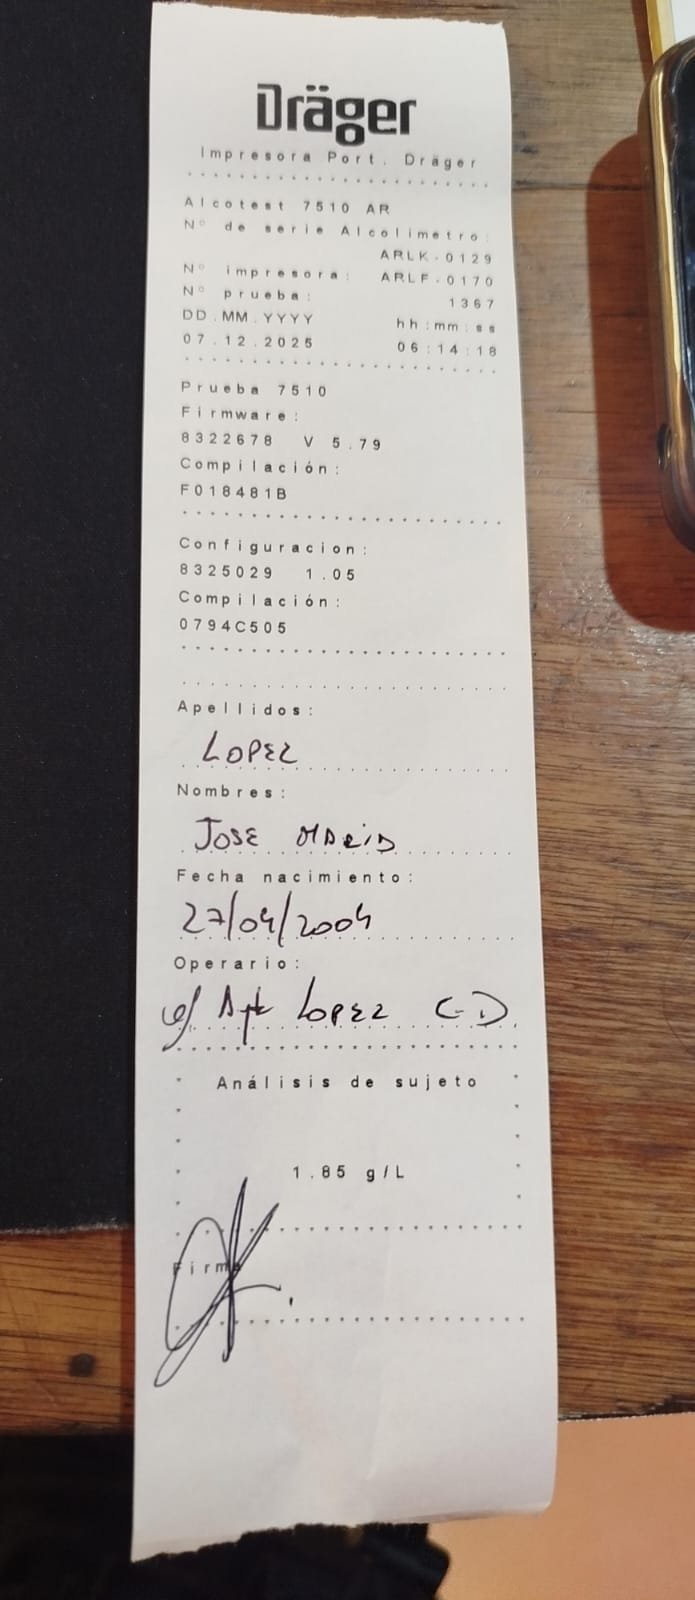 Dräger
Impresora Port. Dräger
Alcotest 7510 AR
Nº de serie Alcolimetro:
ARLK-0129
Nº impresora: ARLF-0170
Nº prueba: 1367
DD.MM.YYYY hh:mm:ss
07.12.2025 06:14:18
Prueba 7510
Firmware:
8322678 V 5.79
Compilación:
F018481B
Configuracion:
8325029 1.05
Compilación:
0794C505
Apellidos:
LOPEZ
Nombres:
JOSE MARIA
Fecha nacimiento:
27/04/2004
Operario:
LOPEZ
Análisis de sujeto
1.85 g/L
Firma